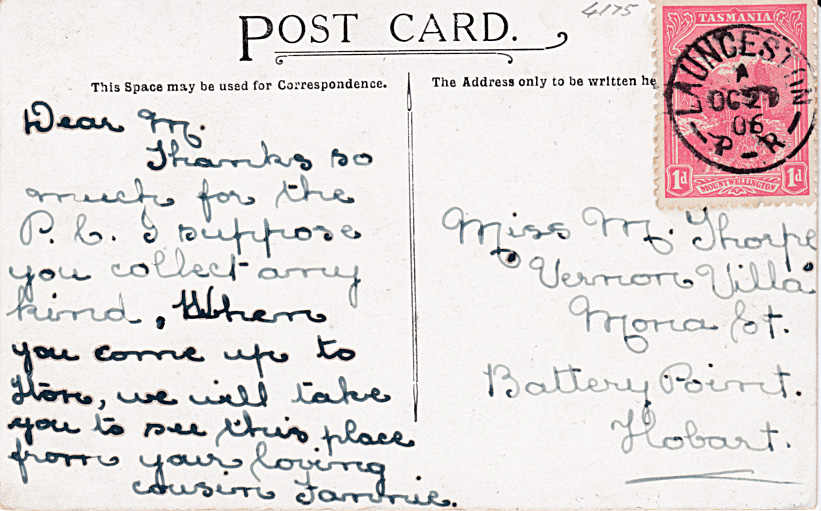 4175
POST CARD.
This Space may be used for Correspondence.
The Address only to be written he
TASMANIA
LAUNCESTON
A
OC 2
06
P R
1d
MOUNT WELLINGTON
1d
Dear M.
Thanks so
much for the
P. C. I suppose
you collect any
kind, When
you come up to
L'ton, we will take
you to see this place
from your loving
cousin Fannie.
Miss M. Thorpe
"Vernon Villa"
Mona St.
Battery Point.
Hobart.